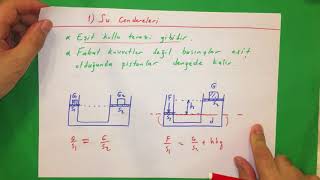 1) Su Cendereleri
* Eşit kollu terazi gibidir.
* Fakat kuvvetler değil basınçlar eşit
olduğunda pistonlar dengede kalır.
G₂
S₁
S₂
F
G
S₁
h
S₂
d
G/S₁ = G/S₂
F/S₁ = G/S₂ + hdg